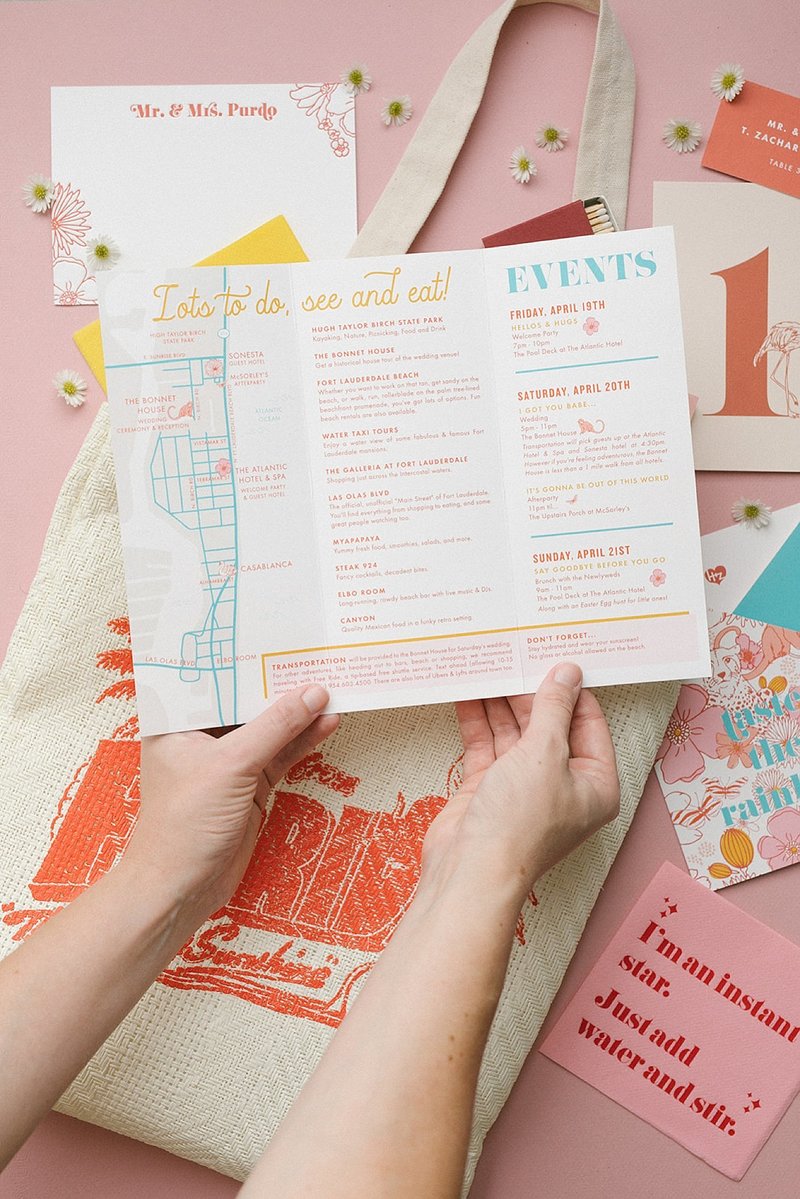 Mr. & Mrs. Purdo
MR. &
T. ZACHAR
TABLE 3
1
Lots to do, see and eat!
HIGH TAYLOR BIRCH
STATE PARK
E. SUNRISE BLVD
SONESTA
GUEST HOTEL
McSORLEY'S
AFTERPARTY
THE BONNET
HOUSE
WEDDING
CEREMONY & RECEPTION
ATLANTIC
OCEAN
VISTAMAR ST
TERRAMAR ST
THE ATLANTIC
HOTEL & SPA
WELCOME PARTY
& GUEST HOTEL
CASABLANCA
ALHAMBRA ST
LAS OLAS BLVD
ELBO ROOM
HUGH TAYLOR BIRCH STATE PARK
Kayaking, Nature, Picnicking, Food and Drink
THE BONNET HOUSE
Get a historical house tour of the wedding venue!
FORT LAUDERDALE BEACH
Whether you want to work on that tan, get sandy on the
beach, or walk, run, rollerblade on the palm tree-lined
beachfront promenade, you've got lots of options. Fun
beach rentals are also available.
WATER TAXI TOURS
Enjoy a water view of some fabulous & famous Fort
Lauderdale mansions.
THE GALLERIA AT FORT LAUDERDALE
Shopping just across the intercoastal waters.
LAS OLAS BLVD
The official, unofficial "Main Street" of Fort Lauderdale.
You'll find everything from shopping to eating, and some
great people watching too.
MYAPAPAYA
Yummy fresh food, smoothies, salads, and more.
STEAK 924
Fancy cocktails, decadent bites.
ELBO ROOM
Long-running, rowdy beach bar with live music & DJs.
CANYON
Quality Mexican food in a funky retro setting.
EVENTS
FRIDAY, APRIL 19TH
HELLOS & HUGS
Welcome Party
7pm - 10pm
The Pool Deck at The Atlantic Hotel
SATURDAY, APRIL 20TH
I GOT YOU BABE...
Wedding
5pm - 11pm
The Bonnet House
Transportation will pick guests up at the Atlantic
Hotel & Spa and Sonesta hotel at 4:30pm.
However if you're feeling adventurous, the Bonnet
House is less than a 1 mile walk from all hotels...
IT'S GONNA BE OUT OF THIS WORLD
Afterparty
11pm til...
The Upstairs Porch at McSorley's
SUNDAY, APRIL 21ST
SAY GOODBYE BEFORE YOU GO
Brunch with the Newlyweds
9am - 11am
The Pool Deck at The Atlantic Hotel
Along with an Easter Egg hunt for little ones!
TRANSPORTATION will be provided to the Bonnet House for Saturday's wedding.
For other adventures, like heading out to bars, beach or shopping, we recommend
traveling with Free Ride, a tip-based free shuttle service. Text ahead (allowing 10-15
minutes 954.603.4500. There are also lots of Ubers & Lyfts around town too.
DON'T FORGET...
Stay hydrated and wear your sunscreen!
No glass or alcohol allowed on the beach.
taste
the
rainb
Sunshine"
I'm an instant
star.
Just add
water and stir.